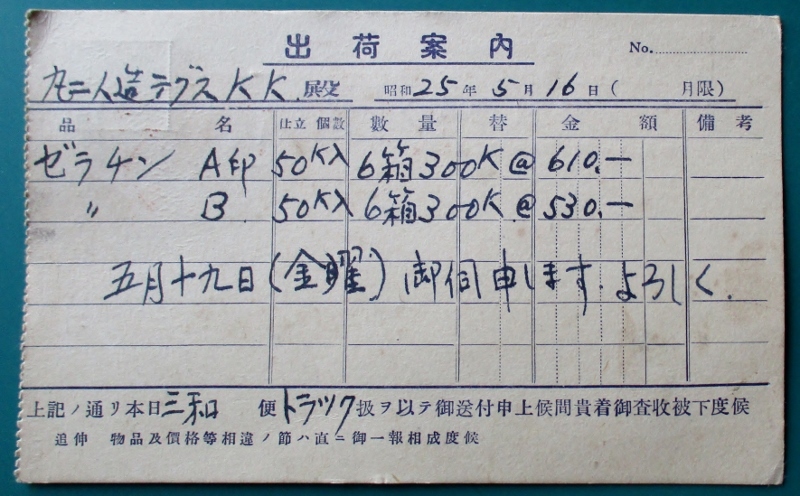 出荷案内
No.
九二人造テグスKK.殿 昭和25年5月16日( 月限)
品名 仕立 個数 数量 替 金額 備考
ゼラチン A印 50K入 6箱300K@610.—
〃 B. 50K入 6箱300K.@530.—
五月十九日(金曜)御伺申します.よろしく.
上記ノ通リ本日三和便トラック扱ヲ以テ御送付申上候間貴着御査收被下度候
追伸 物品及價格等相違ノ節ハ直ニ御一報相成度候